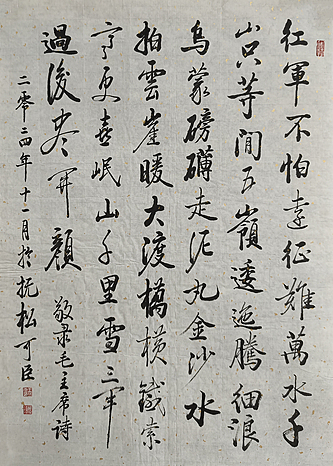 红軍不怕遠征難萬水千
山只等閒五嶺逶迤騰細浪
烏蒙磅礴走泥丸金沙水
拍雲崖暖大渡橋橫鐵索
寒更喜岷山千里雪三軍
過後盡開顏
敬录毛主席詩
二零二四年十一月於抚松可臣